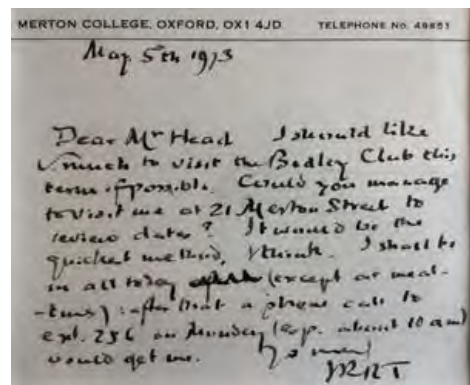 MERTON COLLEGE, OXFORD, OX1 4JD TELEPHONE No. 49651
May 5th 1973
Dear Mr Head I should like
v. much to visit the Bodley Club this
term if possible. Could you manage
to visit me at 21 Merton Street to
review dates? It would be the
quickest method, I think. I shall be
in all today (except at meal-
-times) : after that a phone call to
ext. 256 on Monday (esp. about 10 am)
would get me.
JRRT